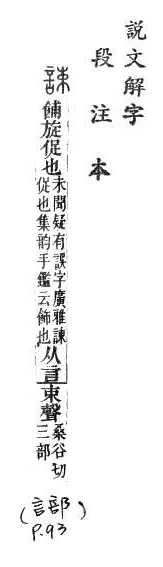 說文解字
段注本
誎 餔旋促也
未聞疑有誤字廣雅誎
促也集韵手鑑云飾也
从言束聲
桑谷切
三部
(言部)
P.93